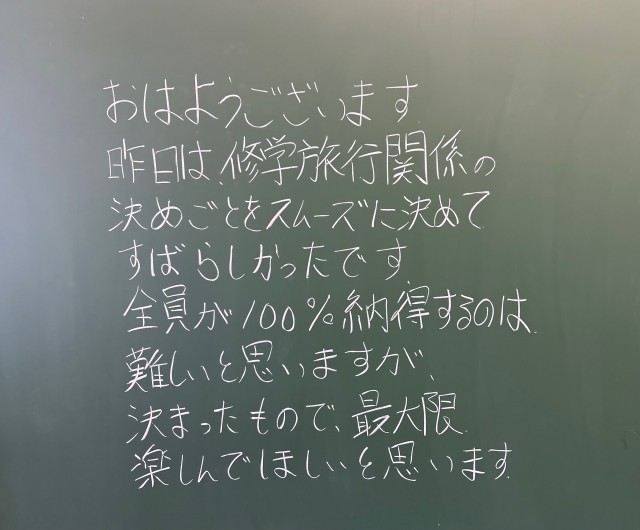 おはようございます
昨日は、修学旅行関係の
決めごとをスムーズに決めて
すばらしかったです
全員が100%納得するのは
難しいと思いますが、
決まったもので、最大限
楽しんでほしいと思います